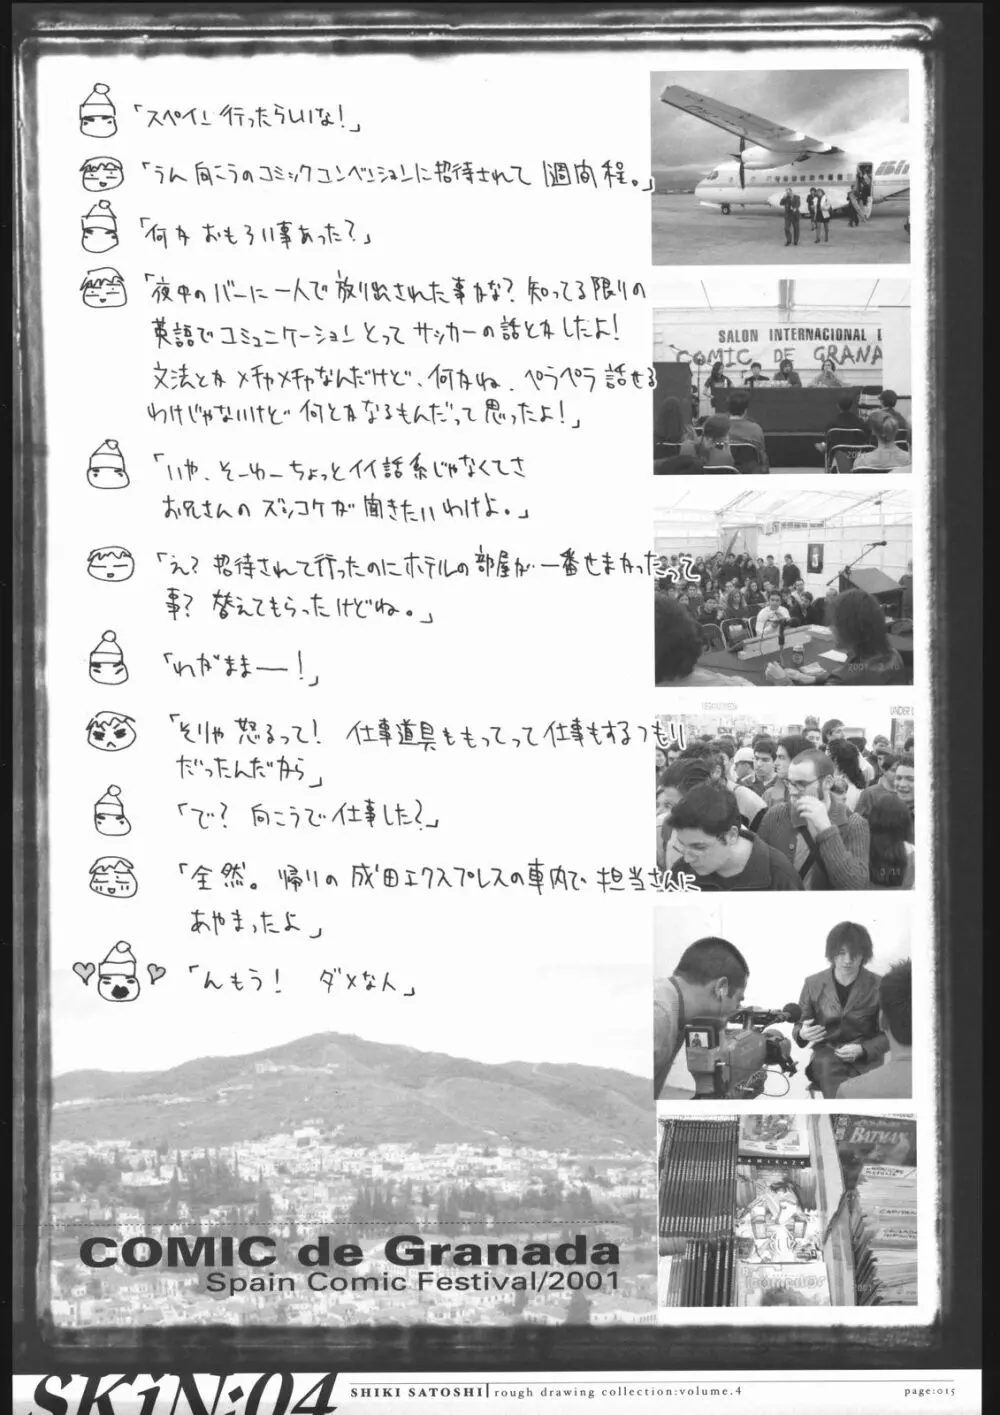 「スペイン行ったらしいな！」
「うん 向こうのコミックコンベンションに招待されて 1週間程。」
「何か おもろい事あった？」
「夜中のバーに一人で放り出された事かな？ 知ってる限りの
英語でコミュニケーションとってサッカーの話とかしたよ！
文法とかメチャメチャなんだけど、何かね、ペラペラ話せる
わけじゃないけど何とかなるもんだって思ったよ！」
「いや、そーゆーちょっとイイ話系じゃなくてさ
お兄さんのズッコケが聞きたいわけよ。」
「え？招待されて行ったのにホテルの部屋が一番せまかったって
事？ 替えてもらったけどね。」
「わがままー！」
「そりゃ怒るって！ 仕事道具ももってって仕事もするつもり
だったんだから」
「で？ 向こうで仕事した？」
「全然。帰りの成田エクスプレスの車内で担当さんに
あやまったよ」
「んもう！ ダメな人」
SALON INTERNACIONAL
COMIC DE GRANA
2001
2001 3 10
UNDER
3/11
KAMIKAZE
BATMAN
COMIC de Granada
Spain Comic Festival/2001
SKiN:04
SHIKI SATOSHI | rough drawing collection:volume.4
page:015